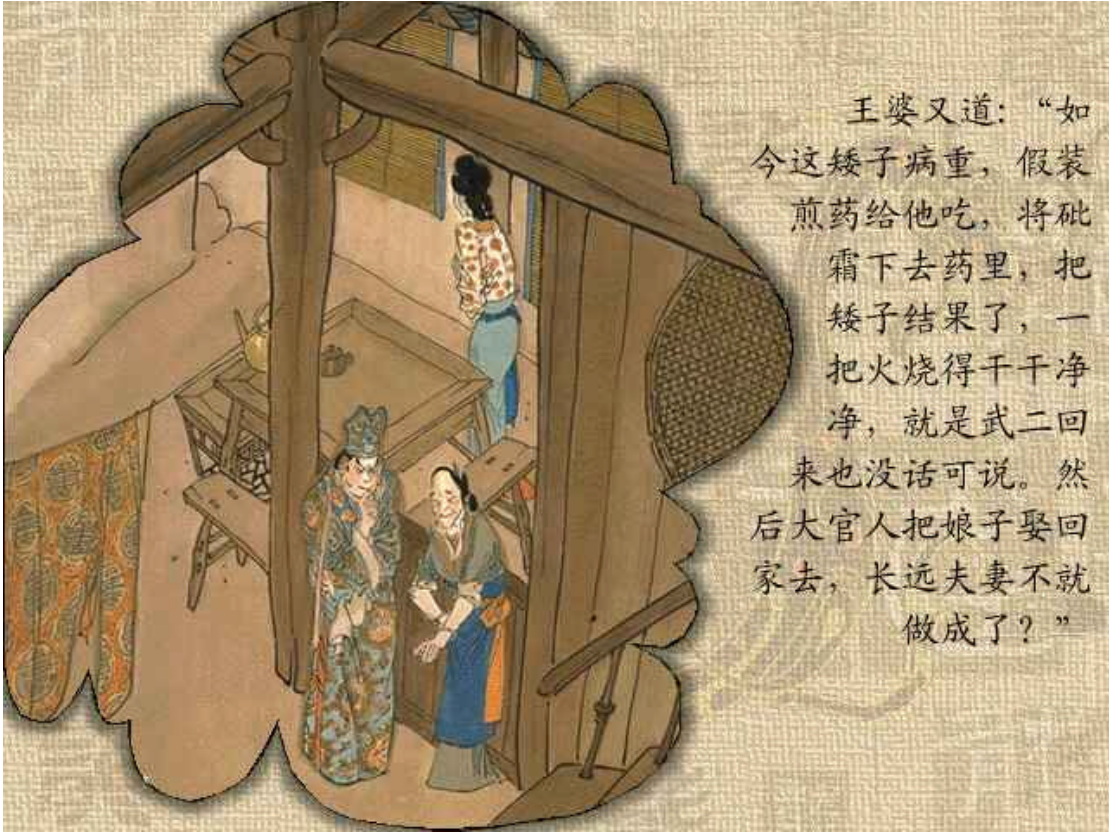 王婆又道：“如
今这矮子病重，假装
煎药给他吃，将砒
霜下去药里，把
矮子结果了，一
把火烧得干干净
净，就是武二回
来也没话可说。然
后大官人把娘子娶回
家去，长远夫妻不就
做成了？”